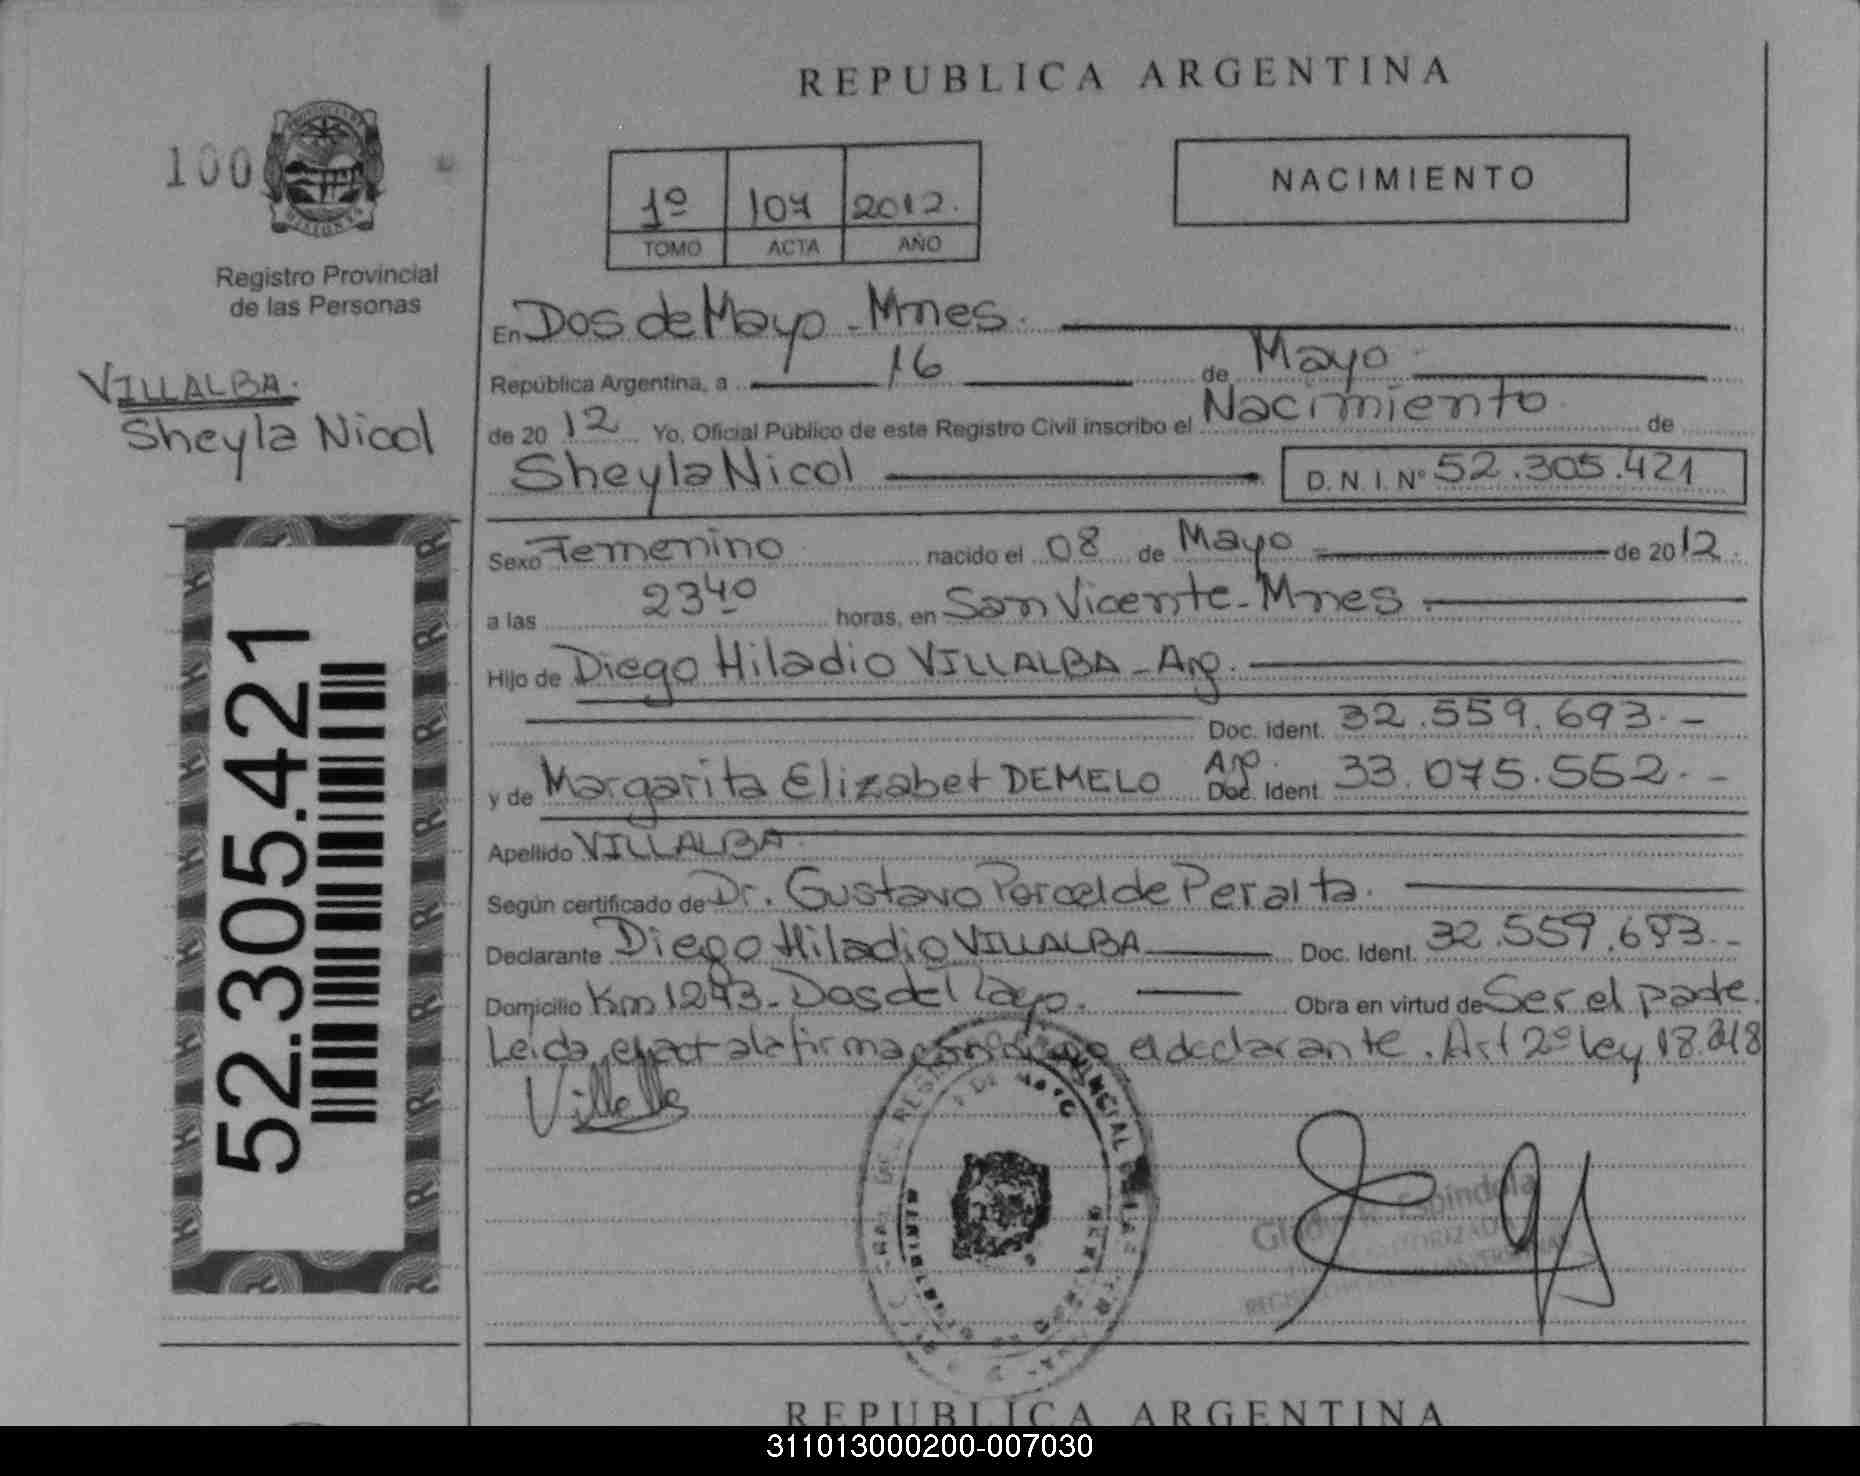 REPUBLICA ARGENTINA
100
1º 107 2012.
TOMO ACTA AÑO
NACIMIENTO
Registro Provincial
de las Personas
VILLALBA.
Sheyla Nicol
52.305.421
En Dos de Mayo - Mnes.
República Argentina, a 16 de Mayo
de 20 12 Yo, Oficial Público de este Registro Civil inscribo el Nacimiento de
Sheyla Nicol D.N.I. Nº 52.305.421
Sexo Femenino nacido el 08 de Mayo de 2012.
a las 23 40 horas, en San Vicente - Mnes.
Hijo de Diego Hiladio VILLALBA - Arg.
Doc. Ident. 32.559.693.-
y de Margarita Elizabet DEMELO Arg. Doc. Ident. 33.075.552.-
Apellido VILLALBA
Según certificado de Dr. Gustavo Porcel de Peralta.
Declarante Diego Hiladio VILLALBA Doc. Ident. 32.559.693.-
Domicilio Km 1243 - Dos de Mayo. Obra en virtud de Ser el padre.
Leida el act a la firma el declarante. Art 2º Ley 18.248
Villalba
Espíndola
REPUBLICA ARGENTINA
311013000200-007030